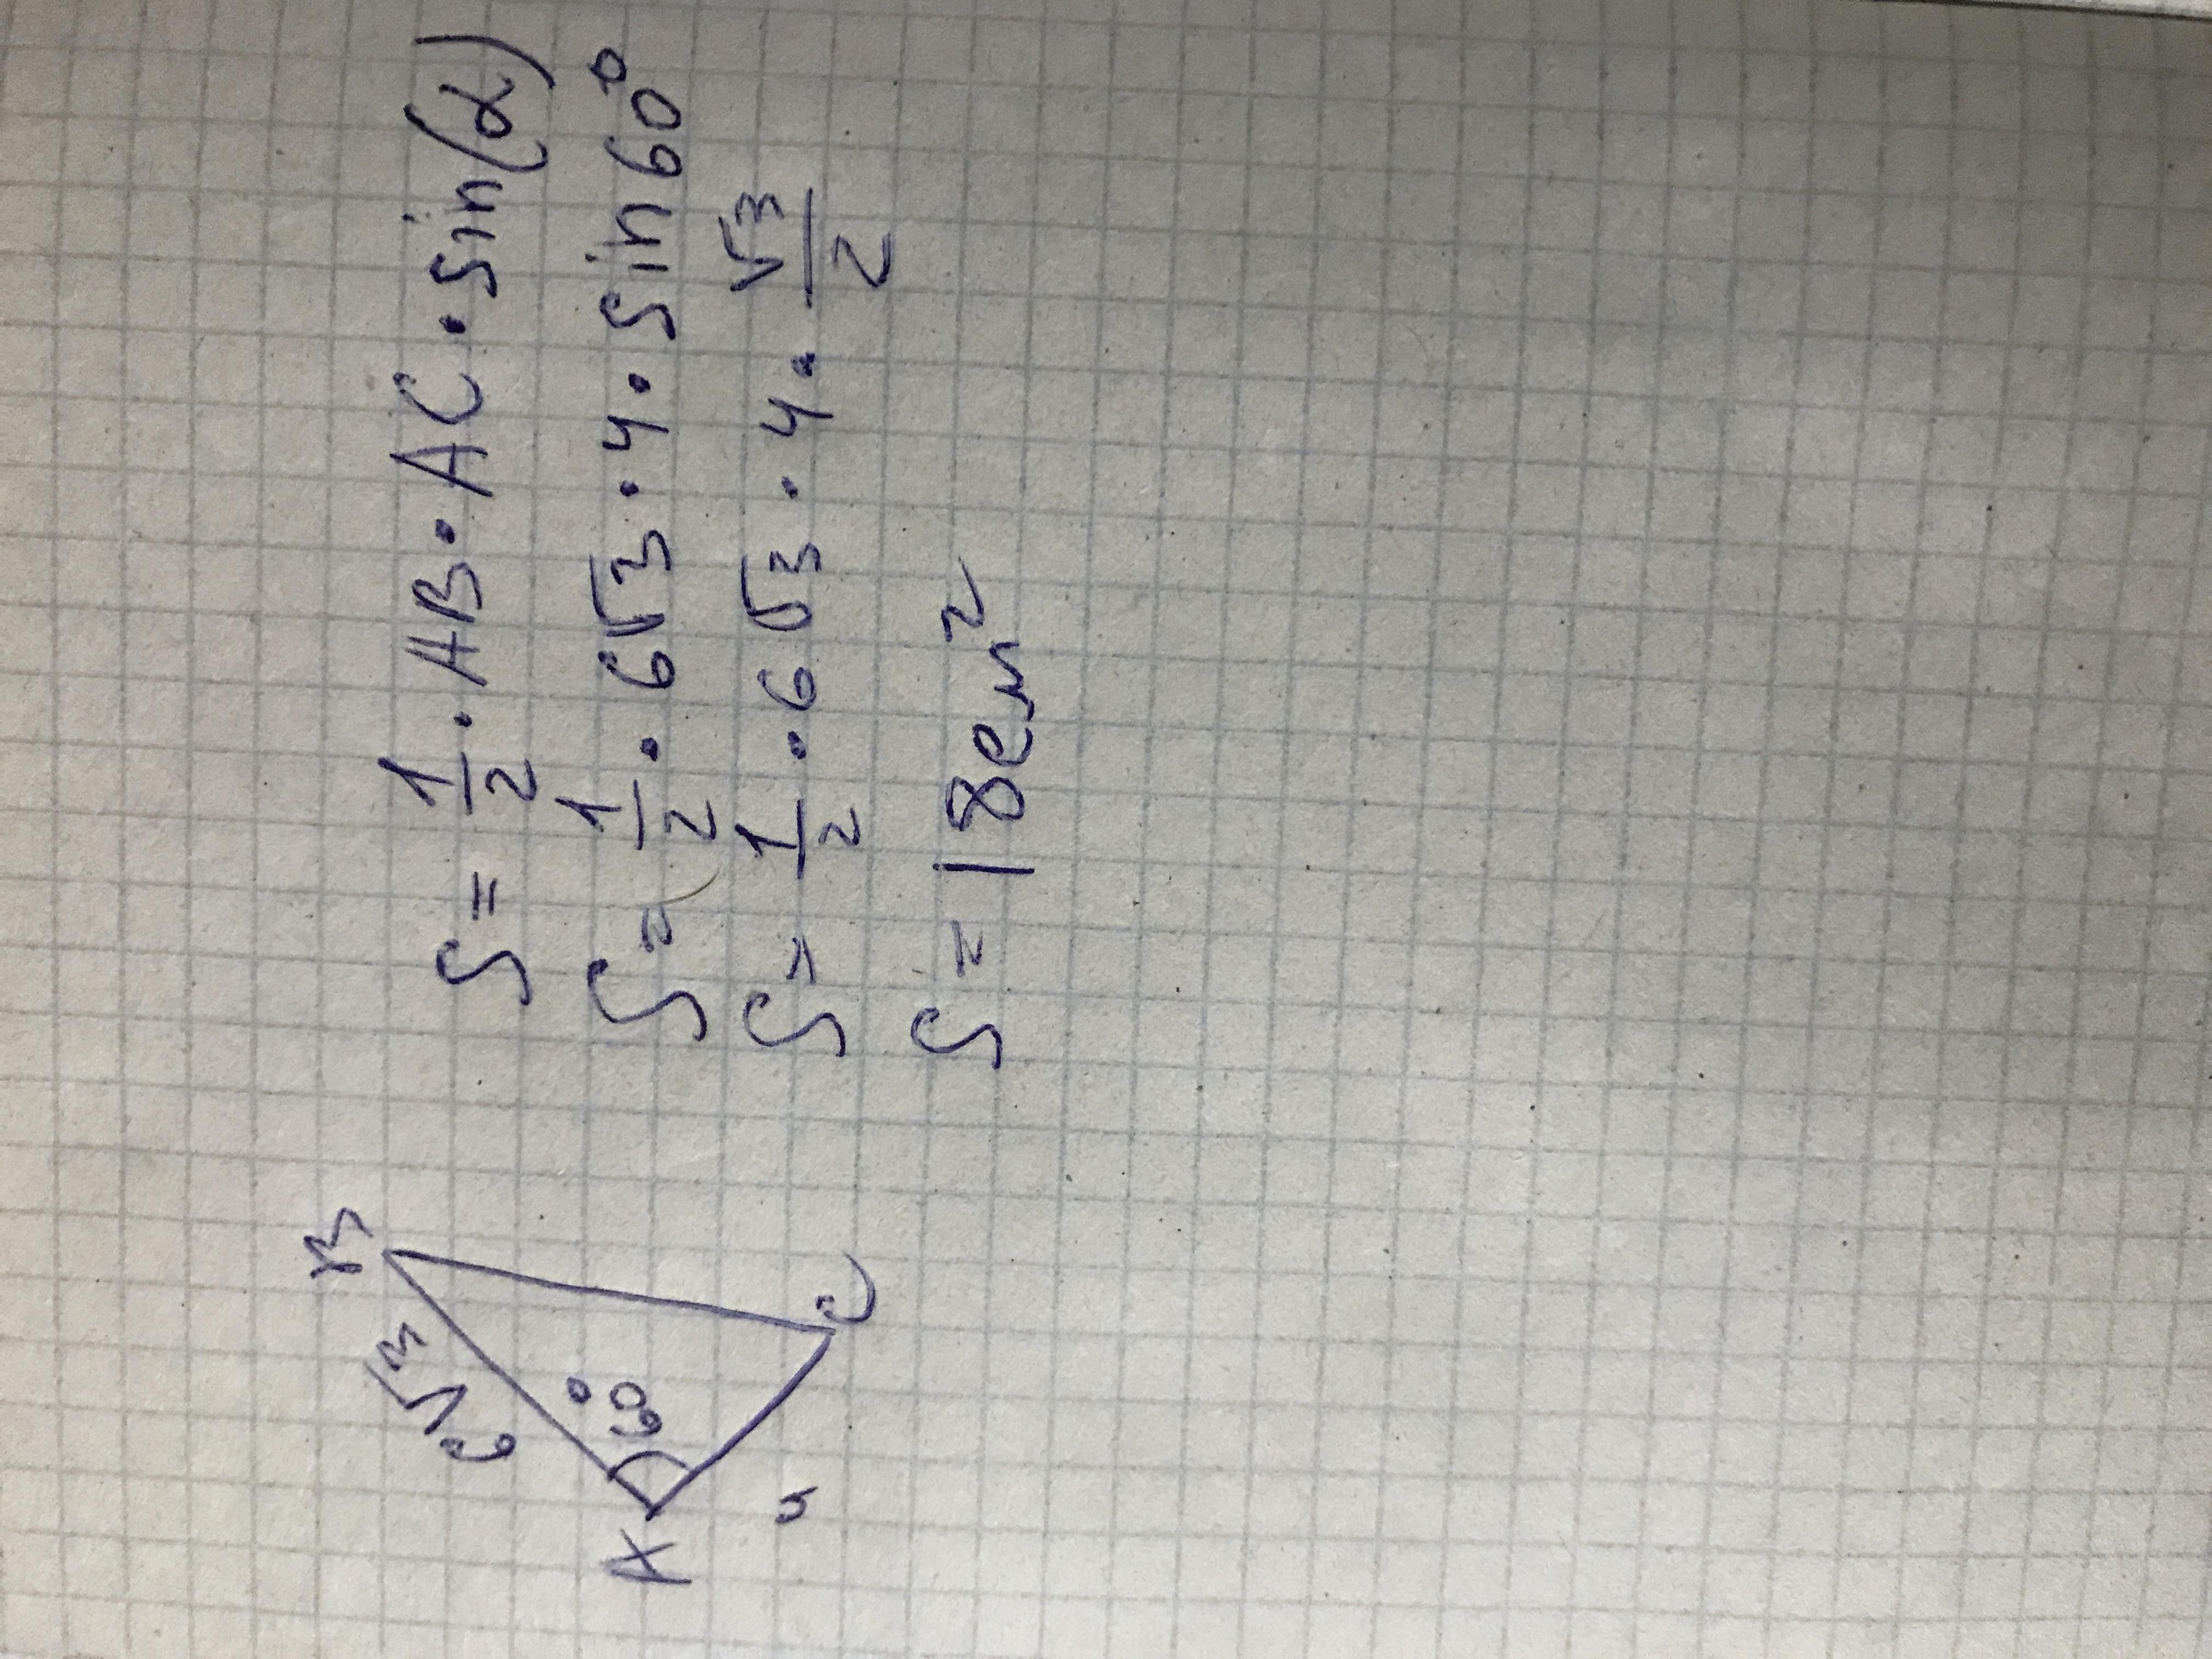 B
6√3
60°
A
4
C
S = 1/2 · AB · AC · sin(α)
S = 1/2 · 6√3 · 4 · sin 60°
S = 1/2 · 6√3 · 4 · √3/2
S = 18 см²